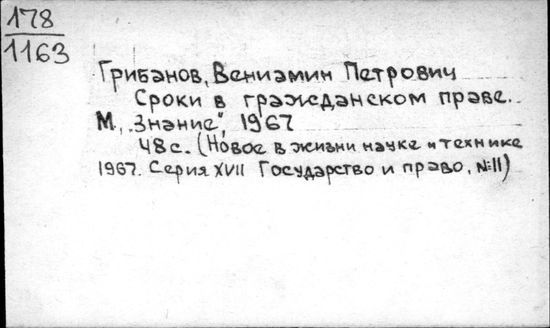 178
1163
Грибанов, Вениамин Петрович
Сроки в гражданском праве.
М., "Знание", 1967
48 с. (Новое в жизни науке и технике
1967. Серия XVII Государство и право, №11)